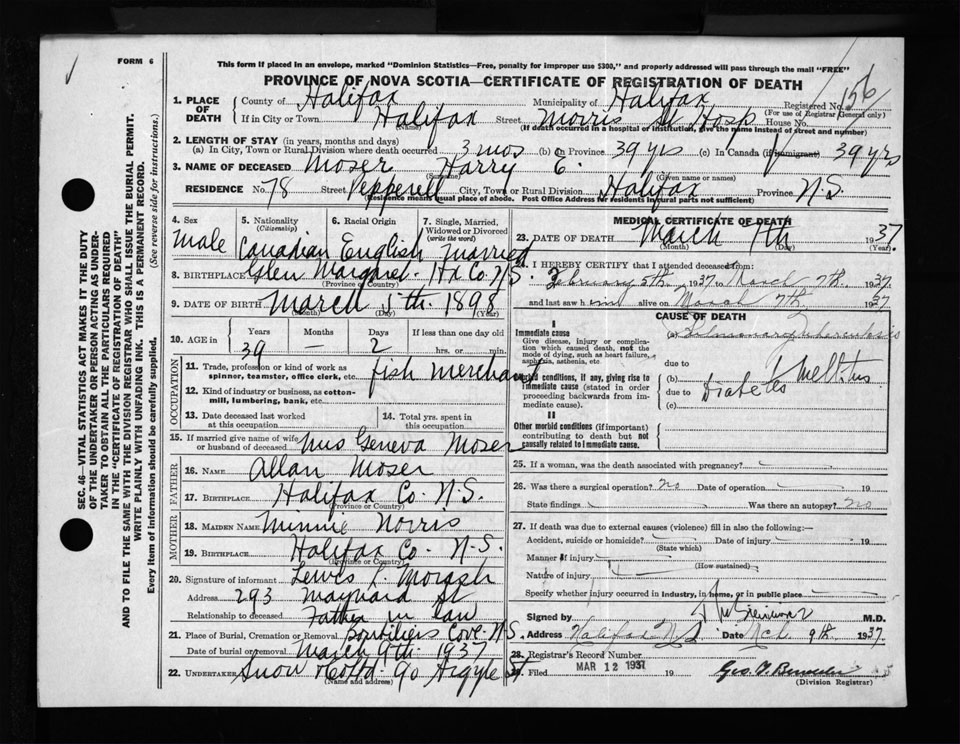 FORM 6
This form if placed in an envelope, marked "Dominion Statistics—Free, penalty for improper use $300," and properly addressed will pass through the mail "FREE"
PROVINCE OF NOVA SCOTIA—CERTIFICATE OF REGISTRATION OF DEATH
SEC. 46—VITAL STATISTICS ACT MAKES IT THE DUTY
OF THE UNDERTAKER OR PERSON ACTING AS UNDER-
TAKER TO OBTAIN ALL THE PARTICULARS REQUIRED
IN THE "CERTIFICATE OF REGISTRATION OF DEATH"
AND TO FILE THE SAME WITH THE DIVISION REGISTRAR WHO SHALL ISSUE THE BURIAL PERMIT.
WRITE PLAINLY WITH UNFADING INK. THIS IS A PERMANENT RECORD.
Every item of information should be carefully supplied. (See reverse side for instructions.)
1. PLACE OF DEATH
County of Halifax Municipality of Halifax Registered No. 156
(For use of Registrar General only)
If in City or Town Halifax Street Morris St Hosp House No.
(Name) (If death occurred in a hospital or institution, give the name instead of street and number)
2. LENGTH OF STAY (in years, months and days)
(a) In City, Town or Rural Division where death occurred 3 mos (b) In Province 39 yrs (c) In Canada (if immigrant) 39 yrs
3. NAME OF DECEASED Moser Harry E.
(Surname) (Given name or names)
RESIDENCE No. 78 Street Pepperell City, Town or Rural Division Halifax Province N.S.
(Residence means usual place of abode. Post Office Address for residents in rural parts not sufficient)
4. Sex Male
5. Nationality (Citizenship) Canadian
6. Racial Origin English
7. Single, Married, Widowed or Divorced (write the word) Married
8. BIRTHPLACE Glen Margaret. Hx Co. N.S.
(Province or Country)
9. DATE OF BIRTH March 5th. 1898
(Month) (Day) (Year)
10. AGE in Years Months Days If less than one day old
39 — 2 hrs. or min.
OCCUPATION
11. Trade, profession or kind of work as spinner, teamster, office clerk, etc. fish merchant
12. Kind of industry or business, as cotton-mill, lumbering, bank, etc.
13. Date deceased last worked at this occupation
14. Total yrs. spent in this occupation
15. If married give name of wife or husband of deceased Mrs Geneva Moser
FATHER
16. NAME Allan Moser
17. BIRTHPLACE Halifax Co. N.S.
(Province or Country)
MOTHER
18. MAIDEN NAME Minnie Norris
19. BIRTHPLACE Halifax Co. N.S.
(Province or Country)
20. Signature of informant Lewis L.
Address 293 Maynard St
Relationship to deceased Father in law
21. Place of Burial, Cremation or Removal Boutiliers Cove N.S.
Date of burial or removal March 9th. 1937
22. UNDERTAKER Snow & Co Ltd. 90 Argyle St
(Name and address)
MEDICAL CERTIFICATE OF DEATH
23. DATE OF DEATH March 7th 1937.
(Month) (Day) (Year)
24. I HEREBY CERTIFY that I attended deceased from:
February 5th. 1937 to March 7th. 1937
and last saw him alive on March 7th. 1937
CAUSE OF DEATH
I
Immediate cause
Give disease, injury or complication which caused death, not the mode of dying, such as heart failure, asphyxia, asthenia, etc.
(a) Pulmonary Tuberculosis
due to
(b) Diabetes Mellitus
due to
(c)
Morbid conditions, if any, giving rise to immediate cause (stated in order proceeding backwards from immediate cause).
II
Other morbid conditions (if important) contributing to death but not causally related to immediate cause.
25. If a woman, was the death associated with pregnancy?
26. Was there a surgical operation? no Date of operation 19
State findings Was there an autopsy? no
27. If death was due to external causes (violence) fill in also the following:—
Accident, suicide or homicide? Date of injury 19
(State which)
Manner of injury
(How sustained)
Nature of injury
Specify whether injury occurred in industry, in home, or in public place
Signed by M.D.
Address Halifax N.S. Date Mch. 9th. 1937.
28. Registrar's Record Number
29. Filed MAR 12 1937 19
(Division Registrar)